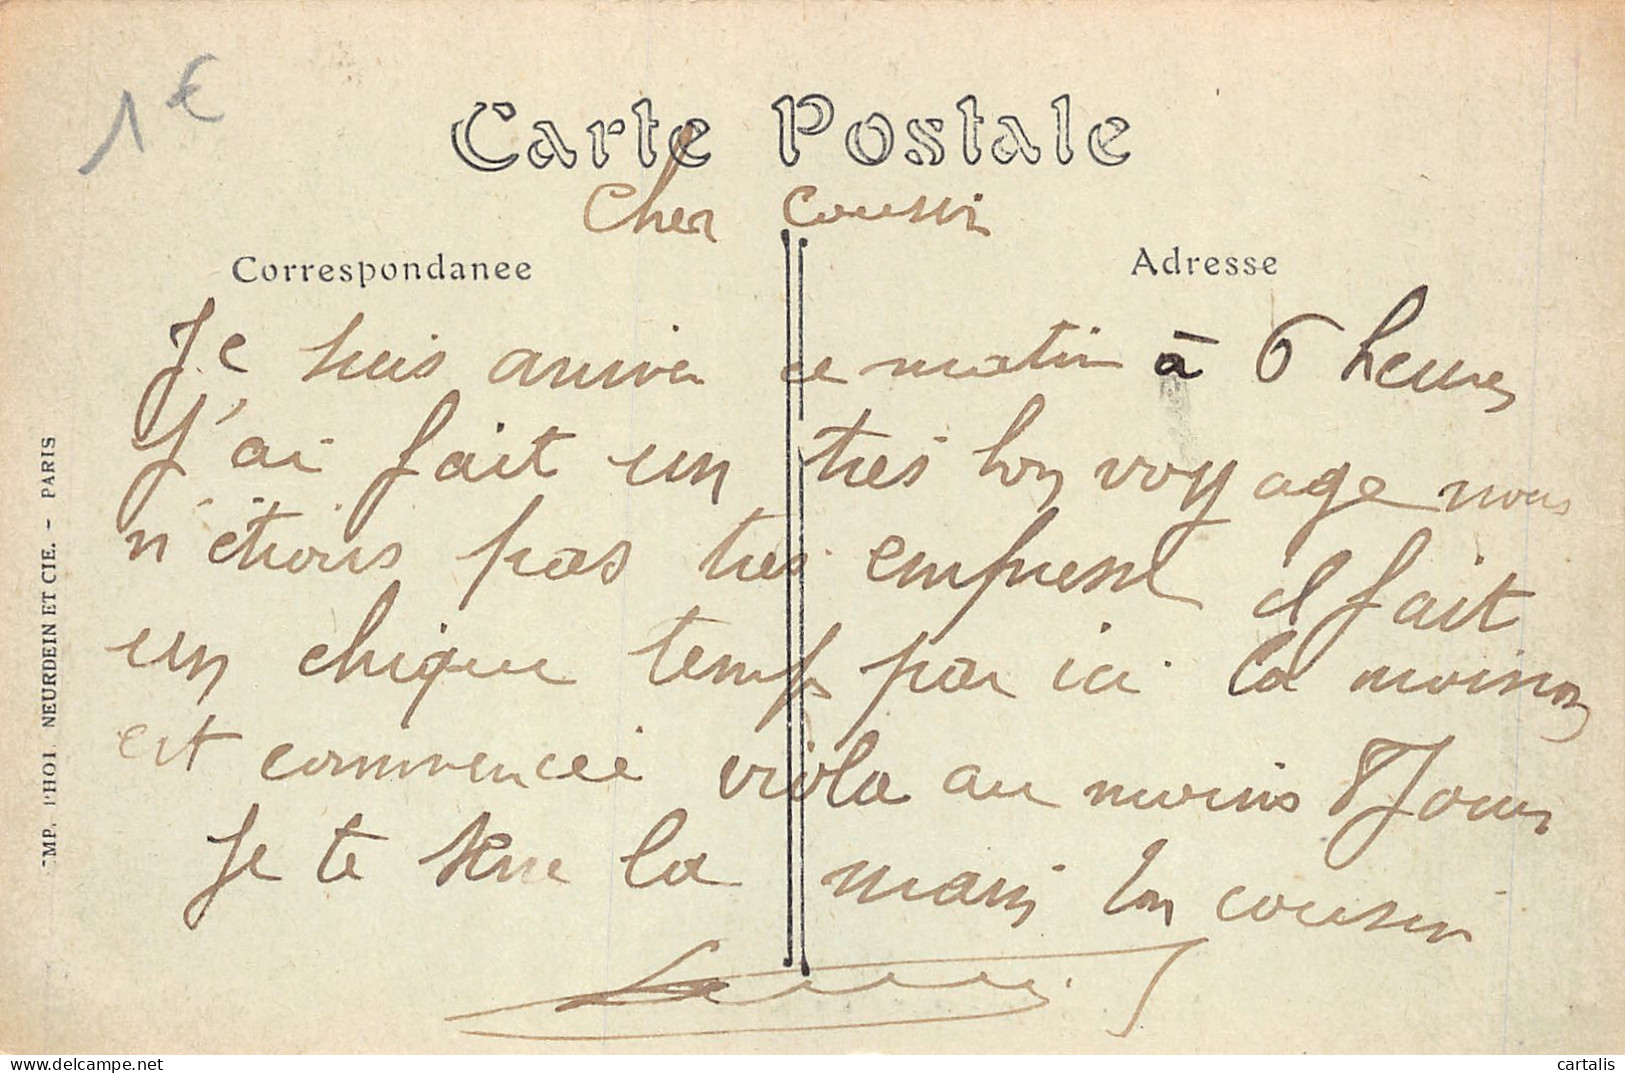 1€
Carte Postale
Cher Cousin
Correspondance
Adresse
Je suis arriver ce matin à 6 heures
J'ai fait un très bon voyage nous
n'étions pas tres empressé il fait
un chique temps par ici la moison
est commencée viola au moins 8 Jours
Je te serre la main ton cousin
IMP. PHOT. NEURDEIN ET CIE. - PARIS
cartalis